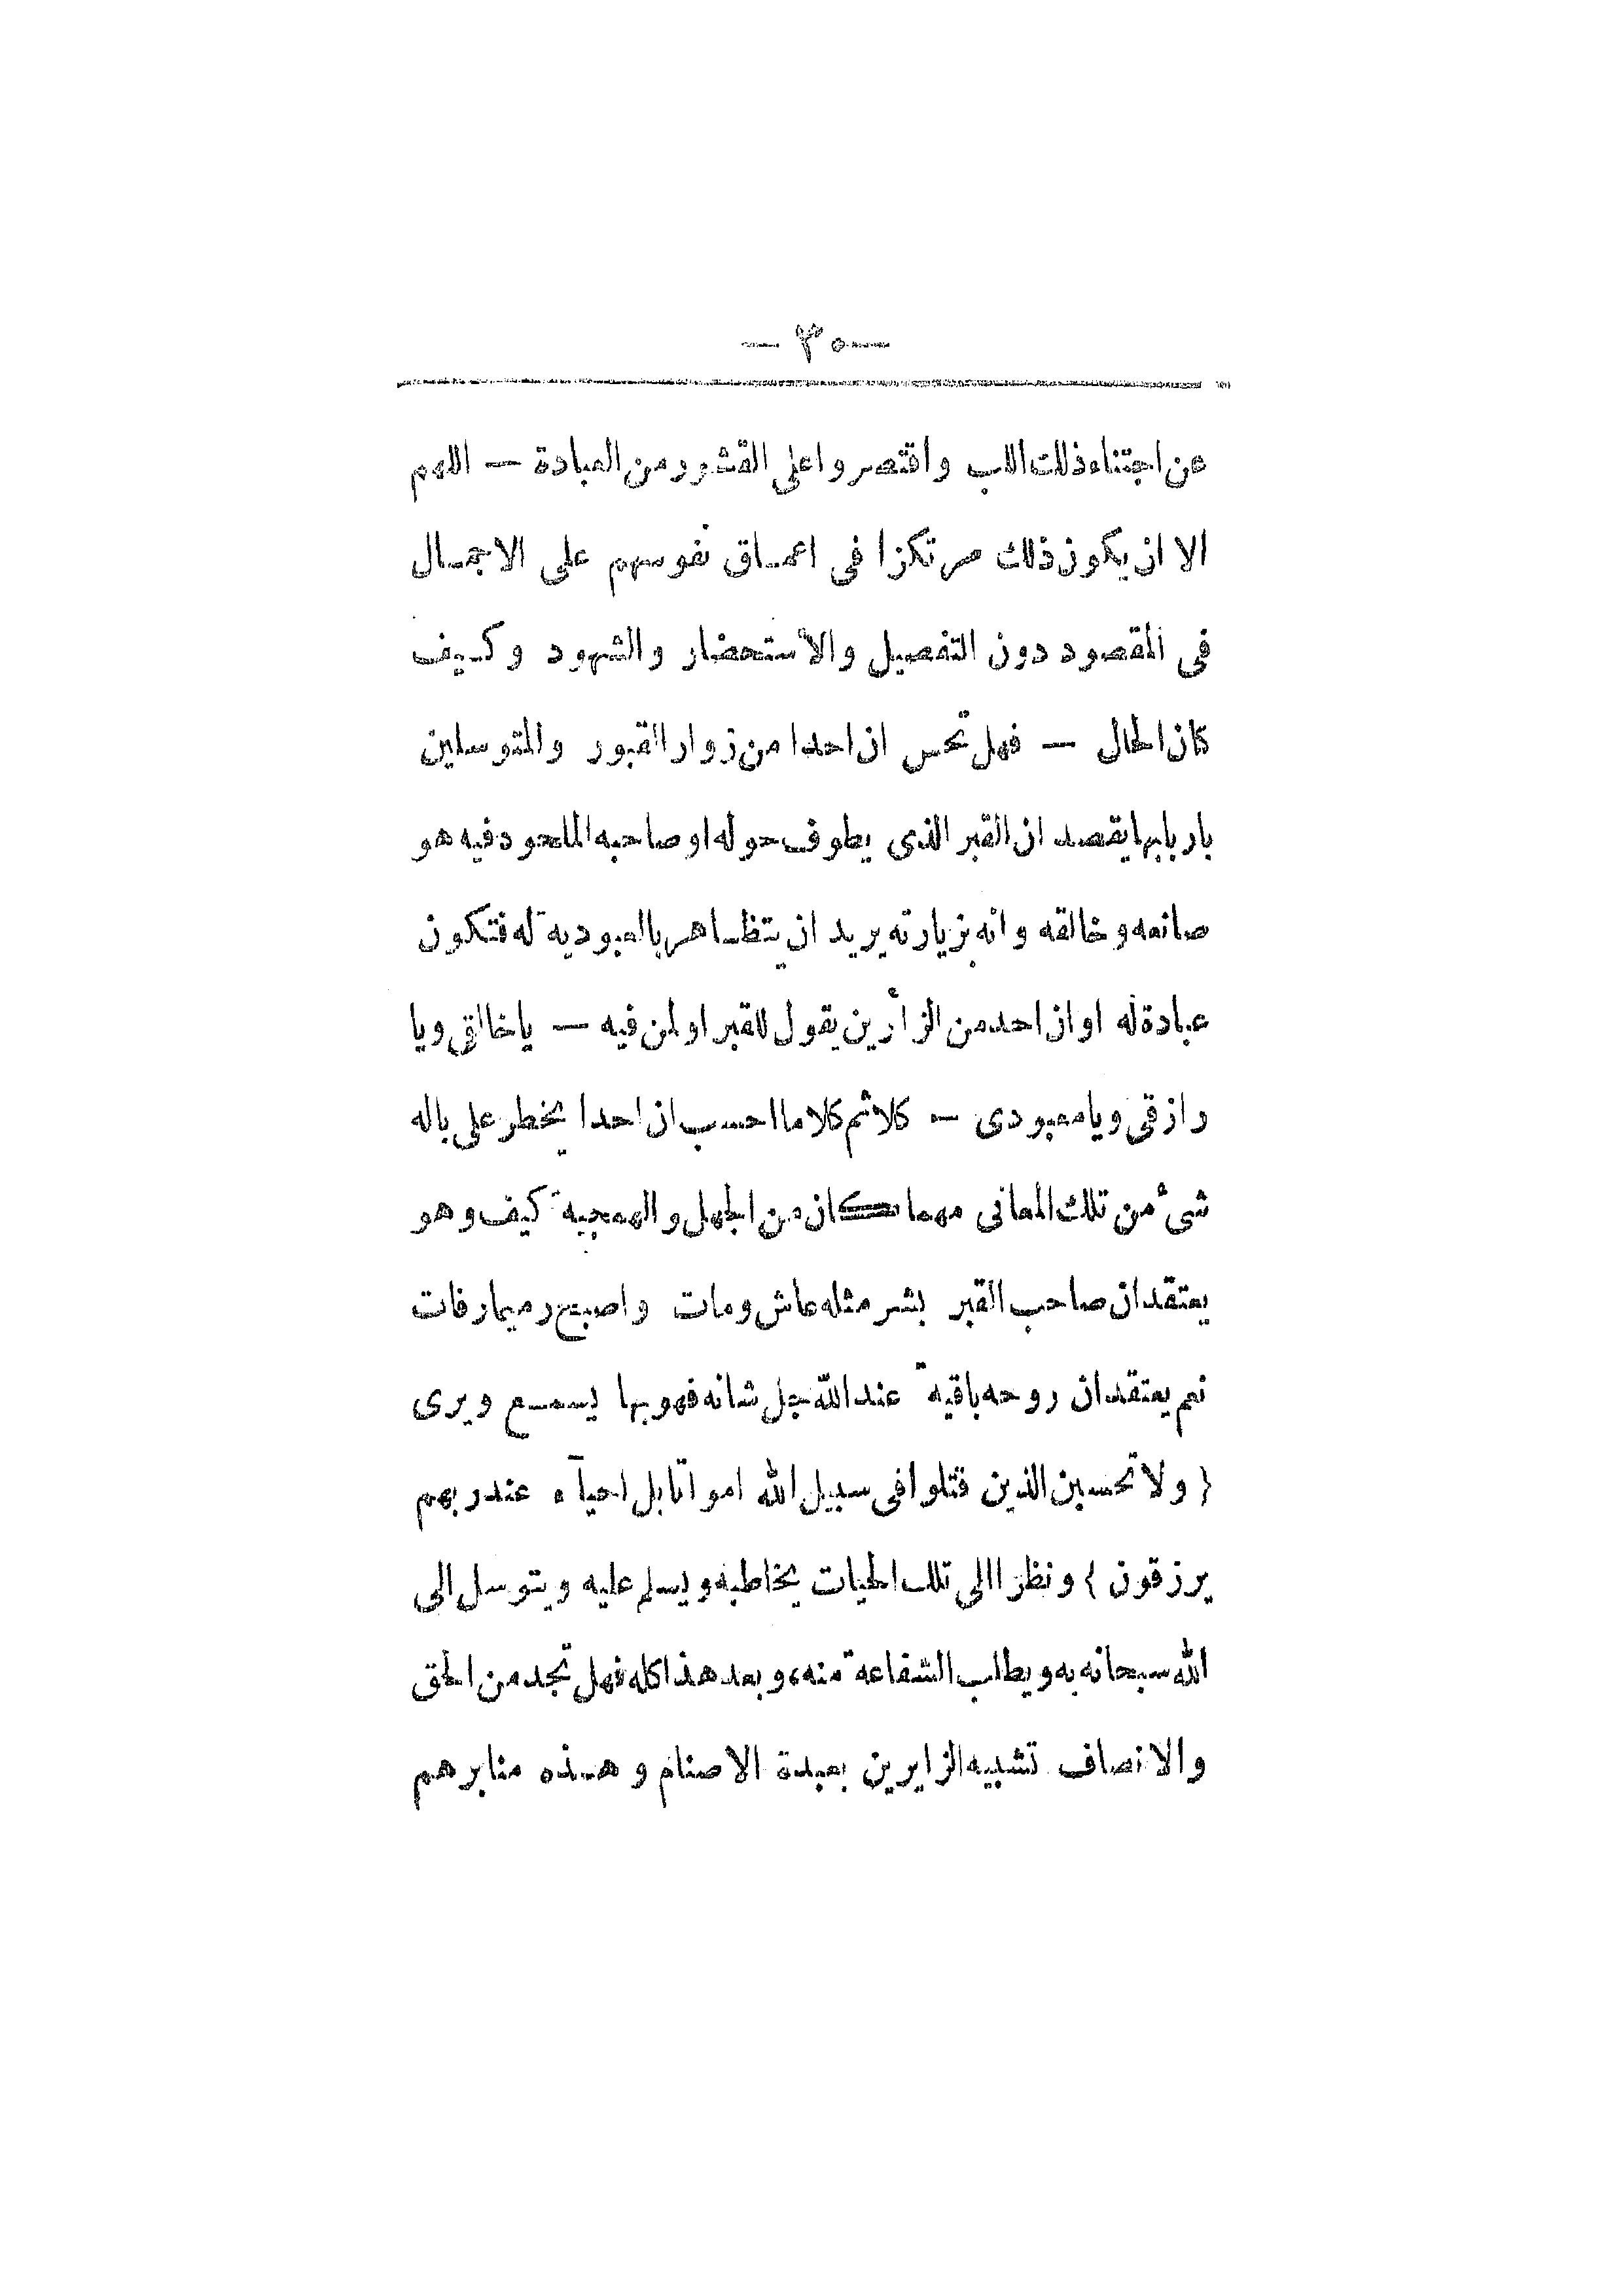 — ٣٠ —
عن اجتناء ذلك اللب واقتصروا على القشور من العبادة — اللهم
الا ان يكون ذلك مرتكزا فى اعمـاق نفوسهم على الاجمـال
فى المقصود دون التفصيل والأستحضار والشهود وكـيف
كان الحال — فهل تحس ان احدا من زوار القبور والمتوسلين
باربابها يقصد ان القبر الذى يطوف حوله او صاحبه الملحود فيه هو
صانعه وخالقه وانه بزيارته يريد ان يتظـاهر بالعبودية له فتكون
عبادة له او ان احد من الزأرين يقول للقبر او لمن فيه — يا خالقى ويا
رازقى ويا معبودى — كلا ثم كلا ما احسب ان احدا يخطر على باله
شئ من تلك المعانى مهما كان من الجهل والهمجية كيف وهو
يعتقد ان صاحب القبر بشر مثله عاش ومات واصبح رميما رفات
نعم يعتقد ان روحه باقية عند الله جل شانه فهو بها يسمـع ويرى
﴿ ولا تحسبن الذين قتلوا فى سبيل الله امواتا بل احيآء عند ربهم
يرزقون ﴾ ونظرا الى تلك الحيات يخاطبه ويسلم عليه ويتوسل الى
الله سبحانه به ويطلب الشفاعة منه، وبعد هذا كله فهل تجد من الحق
والانصاف تشبيه الزايرين بعبدة الاصنام وهـذه منابرهم